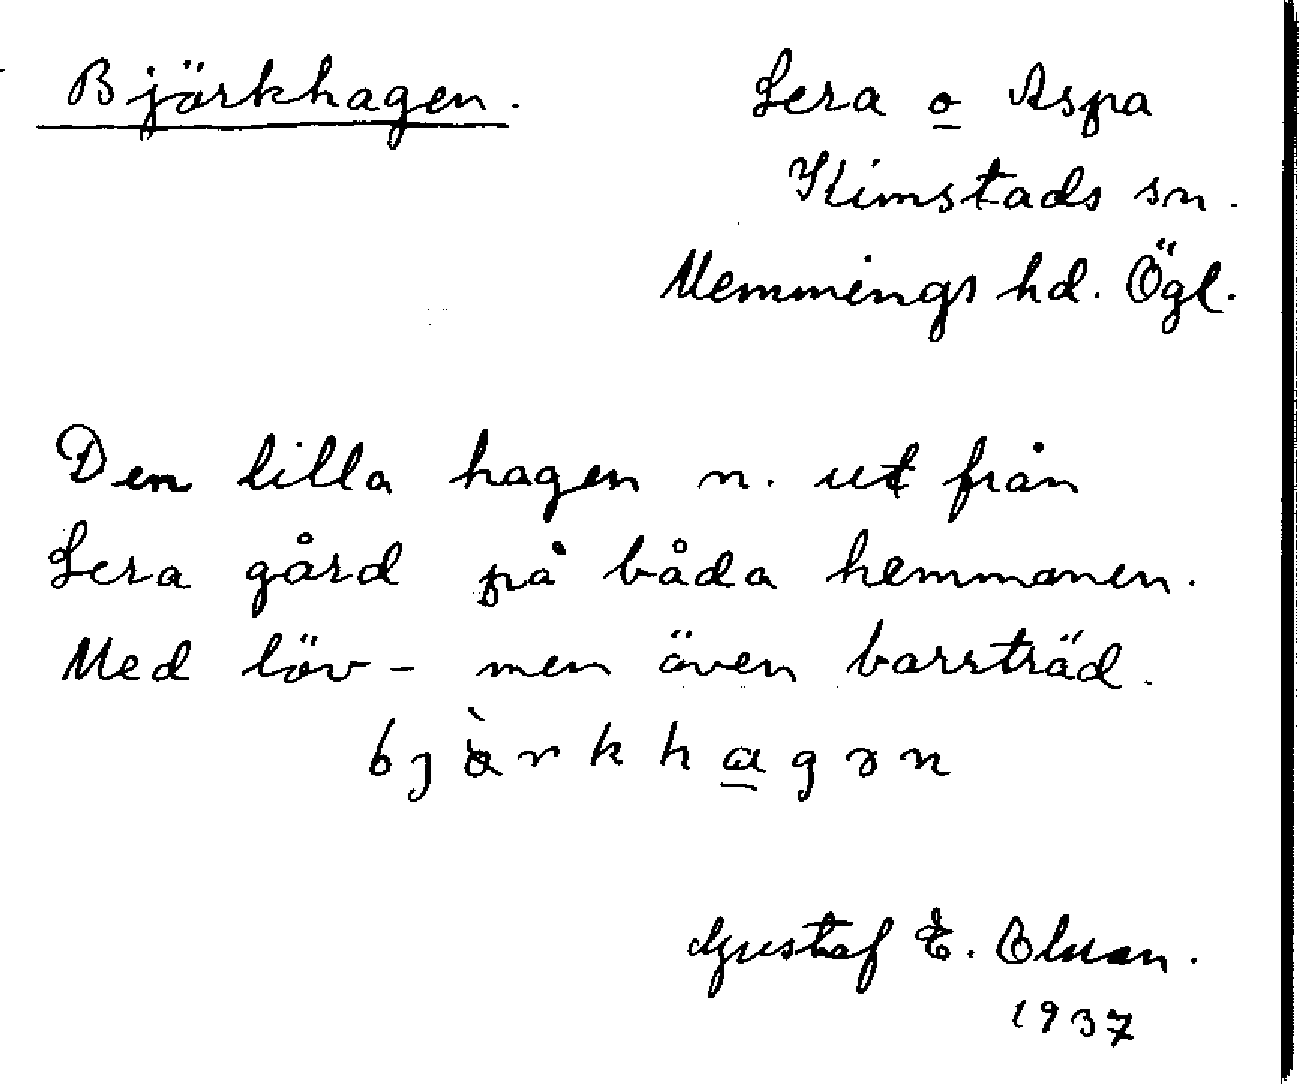 Björkhagen. Lera o Aspa
Kimstads sn.
Memmings hd. Ögl.
Den lilla hagen n. ut från
Lera gård på båda hemmanen.
Med löv- men även barrträd.
bjàrkhagən
Gustaf E.
1937